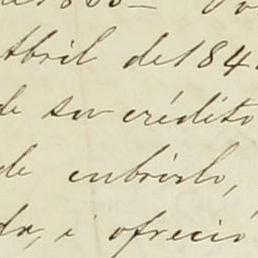 Abril del 84
de su crédito
de cubrirlo,
da, i ofreció